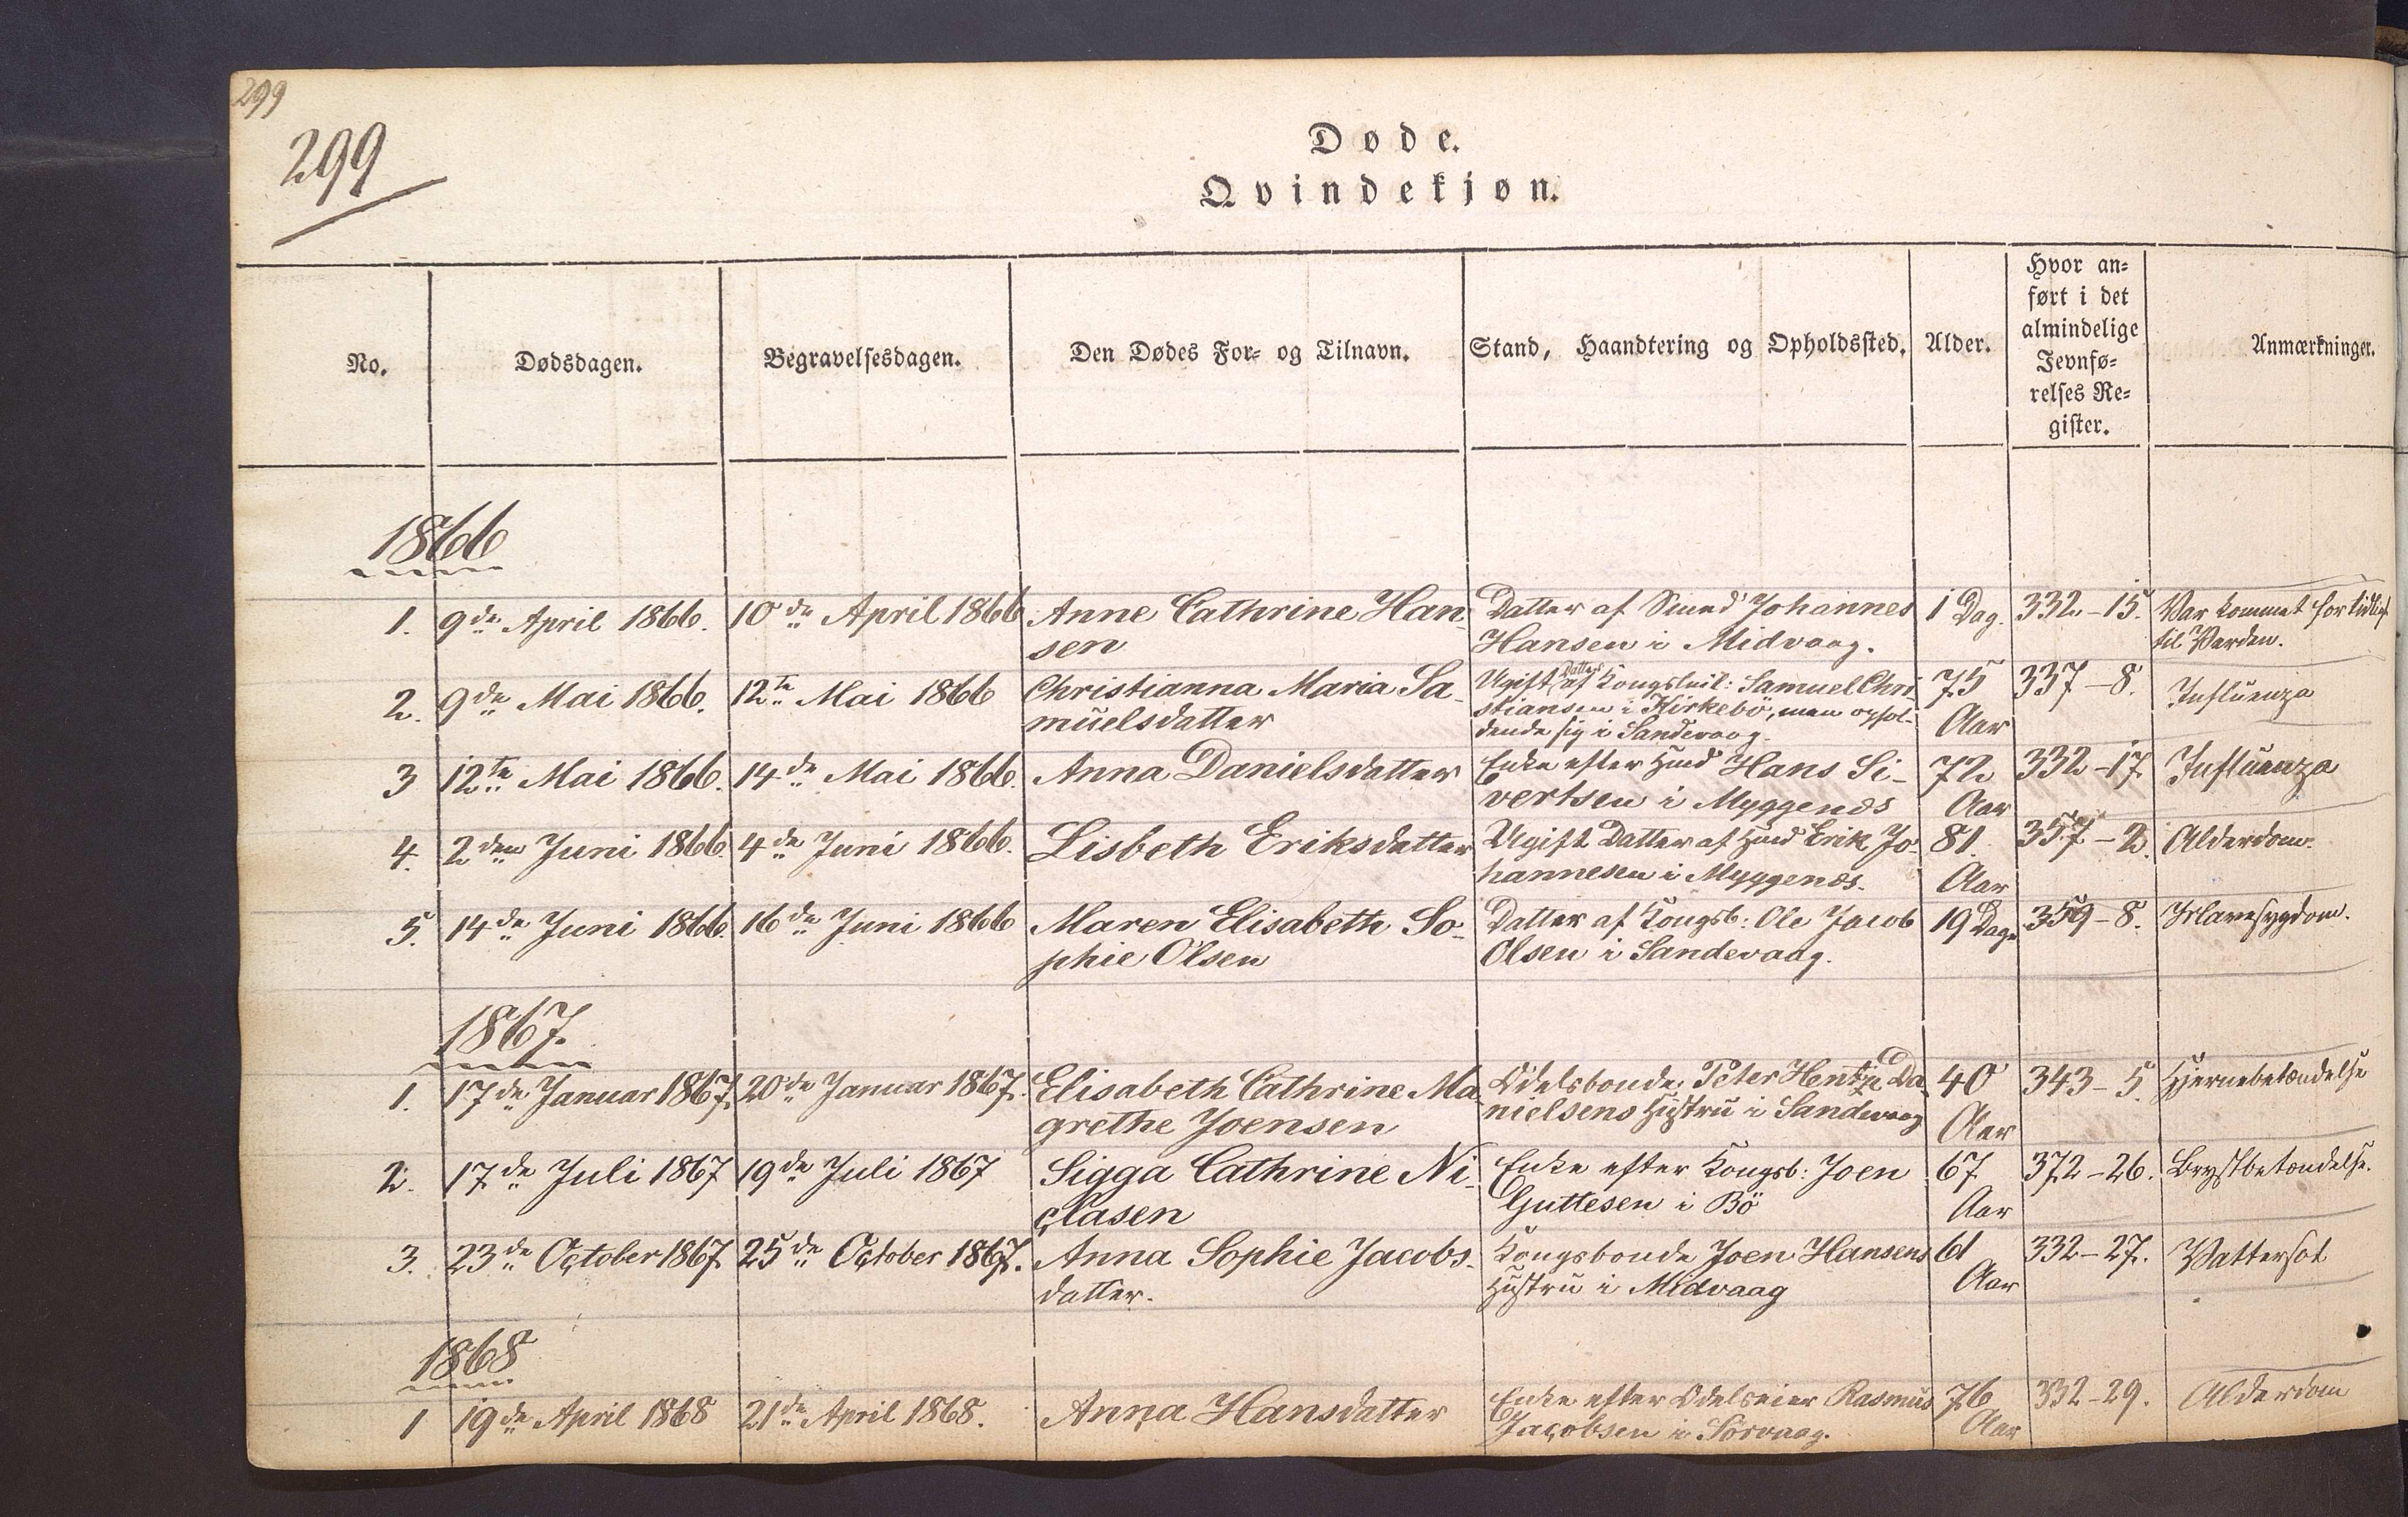 299
299
Døde.
Qvindekjøn.
No.
Dødsdagen.
Begravelsesdagen.
Den Dødes For- og Tilnavn.
Stand, Haandtering og Opholdssted.
Alder.
Hvor an-
ført i det
almindelige
Jevnfø-
relses Re-
gister.
Anmærkninger.
1866
1. 9de April 1866. 10de April 1866 Anne Cathrine Han- Datter af Smed Johannes 1 Dag. 332-15. Var kommet for tidligt
sen Hansen i Midvaag. til Verden.
2. 9de Mai 1866. 12te Mai 1866 Christianna Maria Sa- Ugift Datter af Kongsluil: Samuel Chri- 75 337-8. Influenza
muelsdatter stiansen i Kirkebö, men ophol- Aar
dende sig i Sandevaag.
3 12te Mai 1866. 14de Mai 1866. Anna Danielsdatter Enke efter Huusmd Hans Si- 72 332-17 Influenza
vertsen i Myggenæs Aar
4. 2den Juni 1866. 4de Juni 1866. Lisbeth Eriksdatter Ugift Datter af Huusmd Erik Jo- 81 357-2. Alderdom.
hannesen i Myggenæs. Aar
5. 14de Juni 1866. 16de Juni 1866 Maren Elisabeth So- Datter af Kongsb: Ole Jacob 19 Dage 359-8. Mavesygdom.
phie Olsen Olsen i Sandevaag.
1867.
1. 17de Januar 1867. 20de Januar 1867. Elisabeth Cathrine Ma- Odelsbonde Peter Hentze Da- 40 343-5. Hjernebetændelse
grethe Joensen nielsens Hustru i Sandevaag Aar
2. 17de Juli 1867 19de Juli 1867 Sigga Cathrine Ni- Enke efter Kongsb: Joen 67 372-26. Brystbetændelse.
clasen Guttesen i Bö Aar
3. 23de October 1867 25de October 1867. Anna Sophie Jacobs- Kongsbonde Joen Hansens 61 332-27. Vattersot
datter. Hustru i Midvaag Aar
1868
1 19de April 1868 21de April 1868. Anna Hansdatter Enke efter Odelseier Rasmus 76 332-29. Alderdom
Jacobsen i Sörvaag. Aar